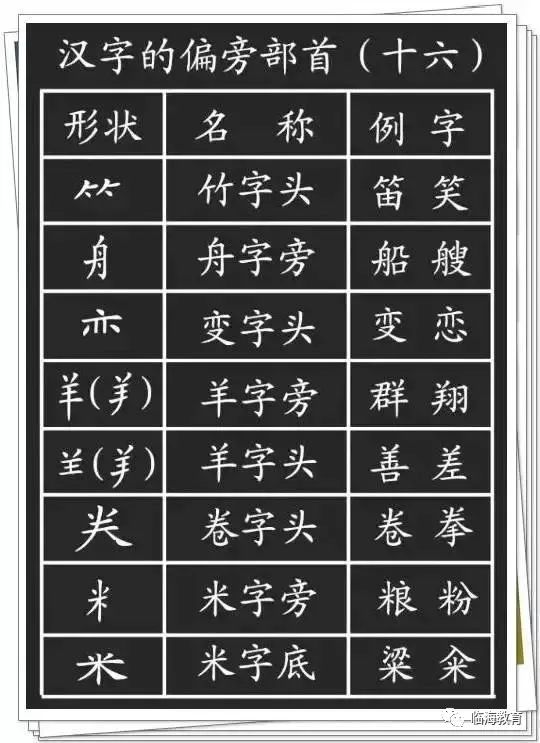 汉字的偏旁部首（十六）
形状 名称 例字
⺮ 竹字头 笛 笑
舟 舟字旁 船 艘
亦 变字头 变 恋
羊(⺶) 羊字旁 群 翔
⺷(⺶) 羊字头 善 差
龹 卷字头 卷 拳
米 米字旁 粮 粉
米 米字底 粱 籴
临海教育